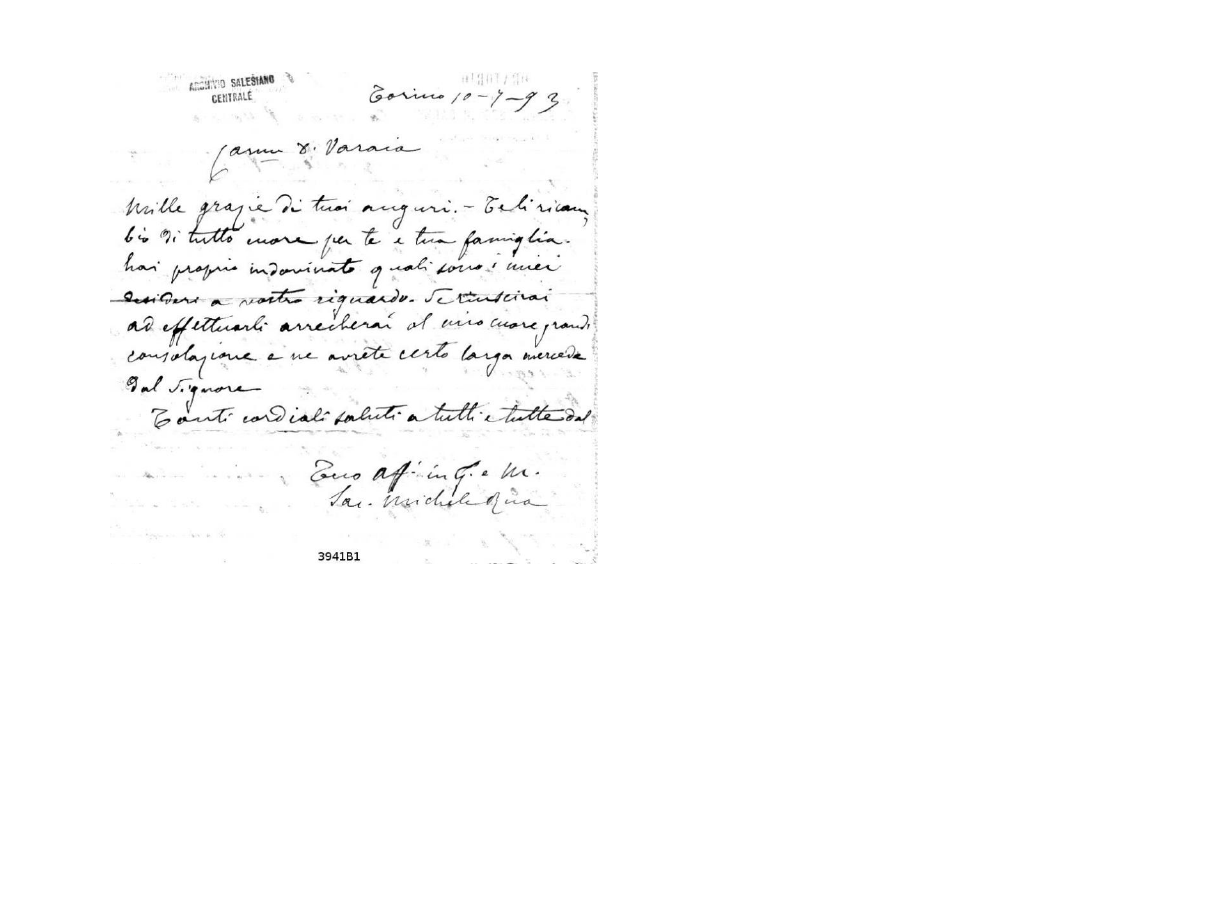 ARCHIVIO SALESIANO
CENTRALE
Torino 10-7-93
Carmo D. Varaia
Mille grazie di tuoi auguri. - Te li ricam
bio di tutto cuore per te e tua famiglia.
hai proprio indovinato quali sono i miei
desideri a vostro riguardo. Se riuscirai
ad effettuarli arrecherai al mio cuore grande
consolazione e ne avrete certo larga mercede
dal Signore
Tanti cordiali saluti a tutti e tutte dal
Tuo Aff. in G. e M.
Sac. Michele Rua
3941B1